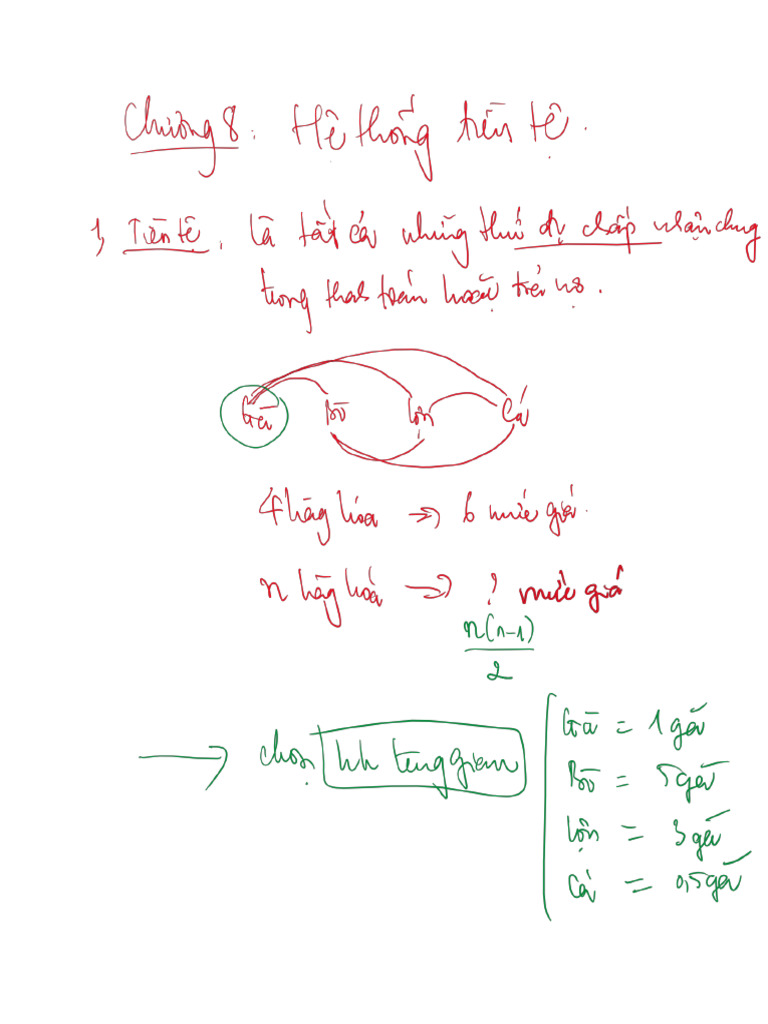 Chương 8: Hệ thống tiền tệ.
1, Tiền tệ: là tất cả những thứ đc chấp nhận chung
trong thah toán hoặc trả nợ.
Gà Bò Lợn Cá
4 hàg hóa → 6 mức giá.
n hàg hóa → ? mức giá
n(n-1)/2
→ chọn hh tung gian
Gà = 1 gấ
Bò = 5 gấ
Lợn = 3 gấ
Cá = 0,5 gấ